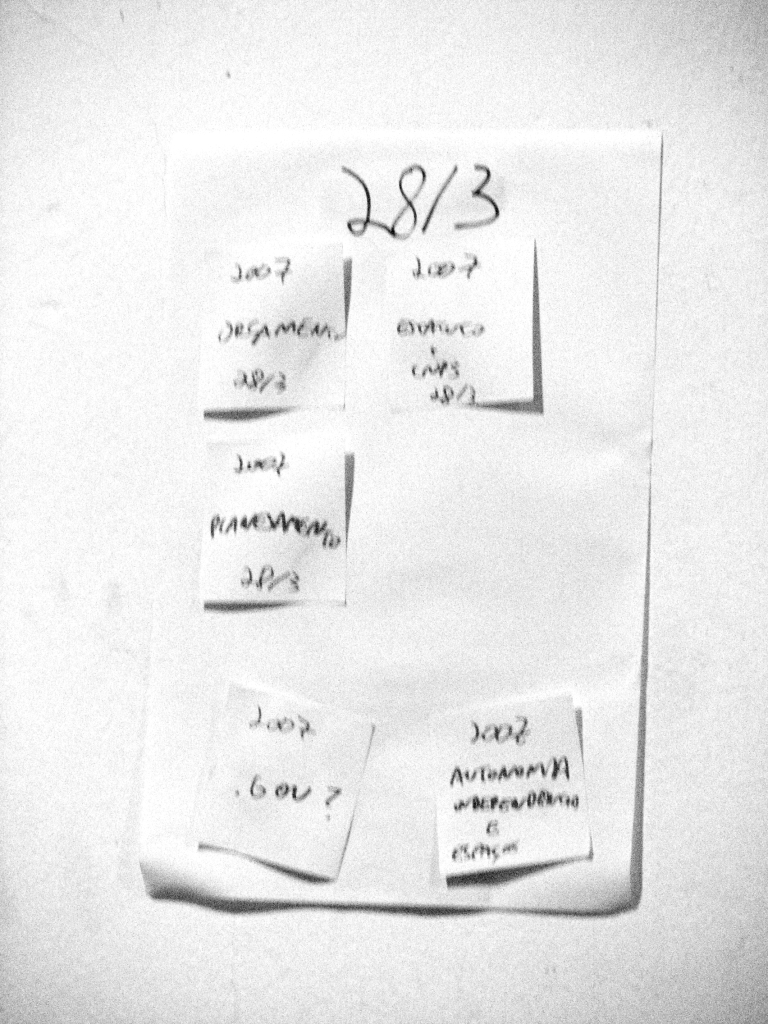 28/3
2007
ORÇAMENTO
28/3
2007
ESTATUTO
+
CNPJ
28/3
2007
PLANEJAMENTO
28/3
2007
.GOV ?
2007
AUTONOMIA
E
ESPAÇOS